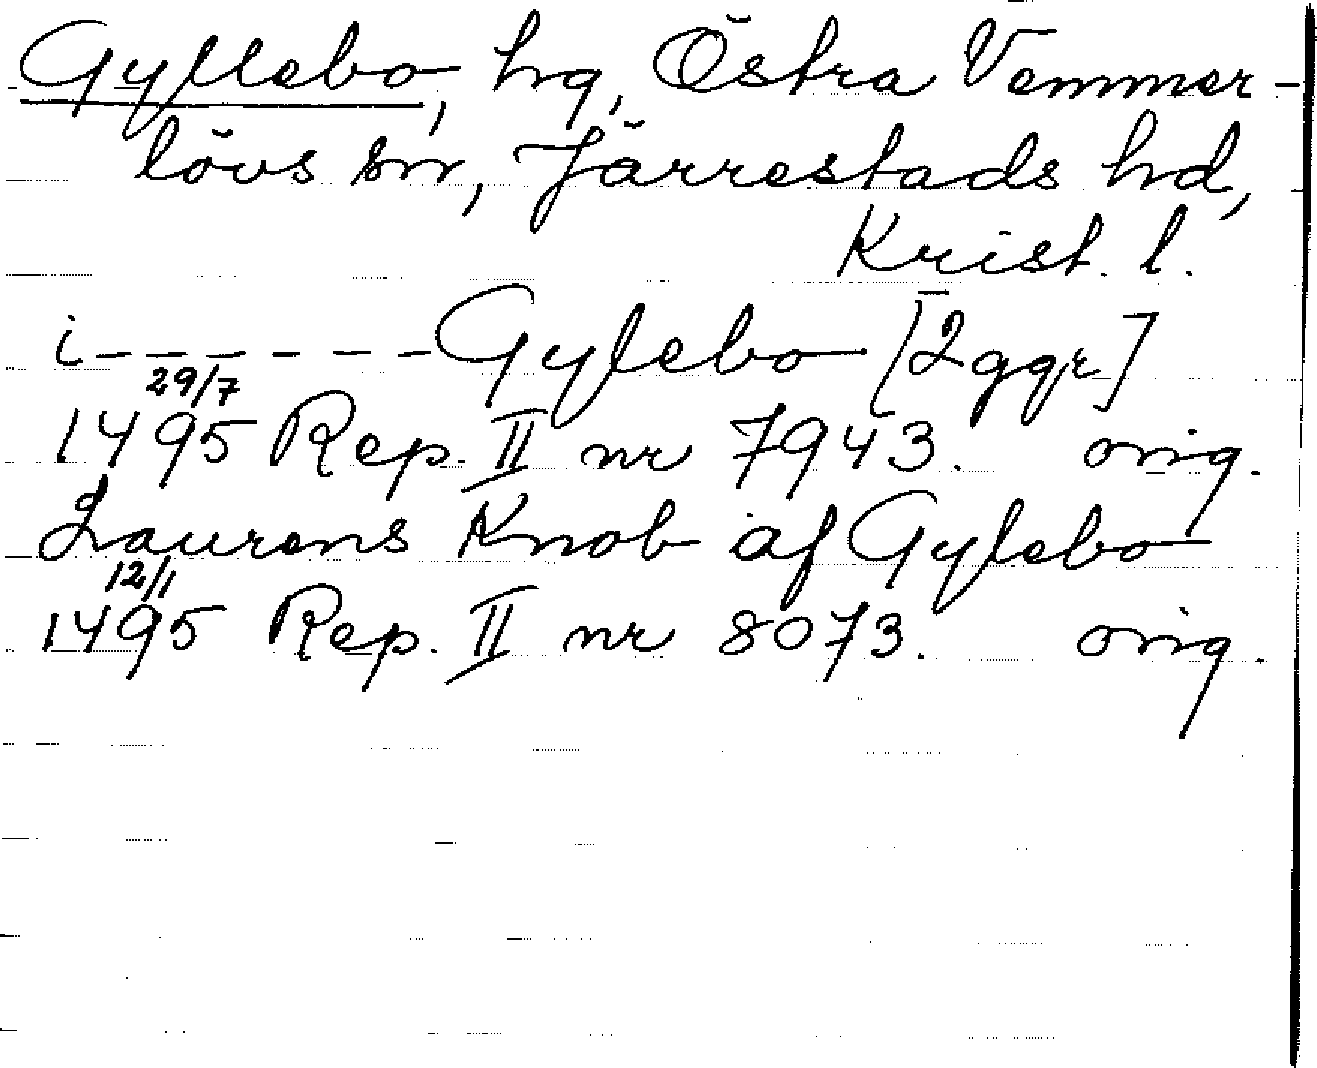 Gyllebo, hg, Östra Vemmer-
lövs sn, Järrestads hd,
Krist. l.
i - - - - - - Gylebo [2 ggr]
29/7
1495 Rep. II nr 7943. orig.
Laurens Knob af Gylebo
12/1
1495 Rep. II nr 8073. orig.